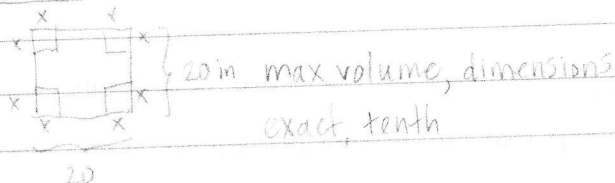 x x
x x
20 in max volume, dimensions
x x
x x
exact, tenth
20